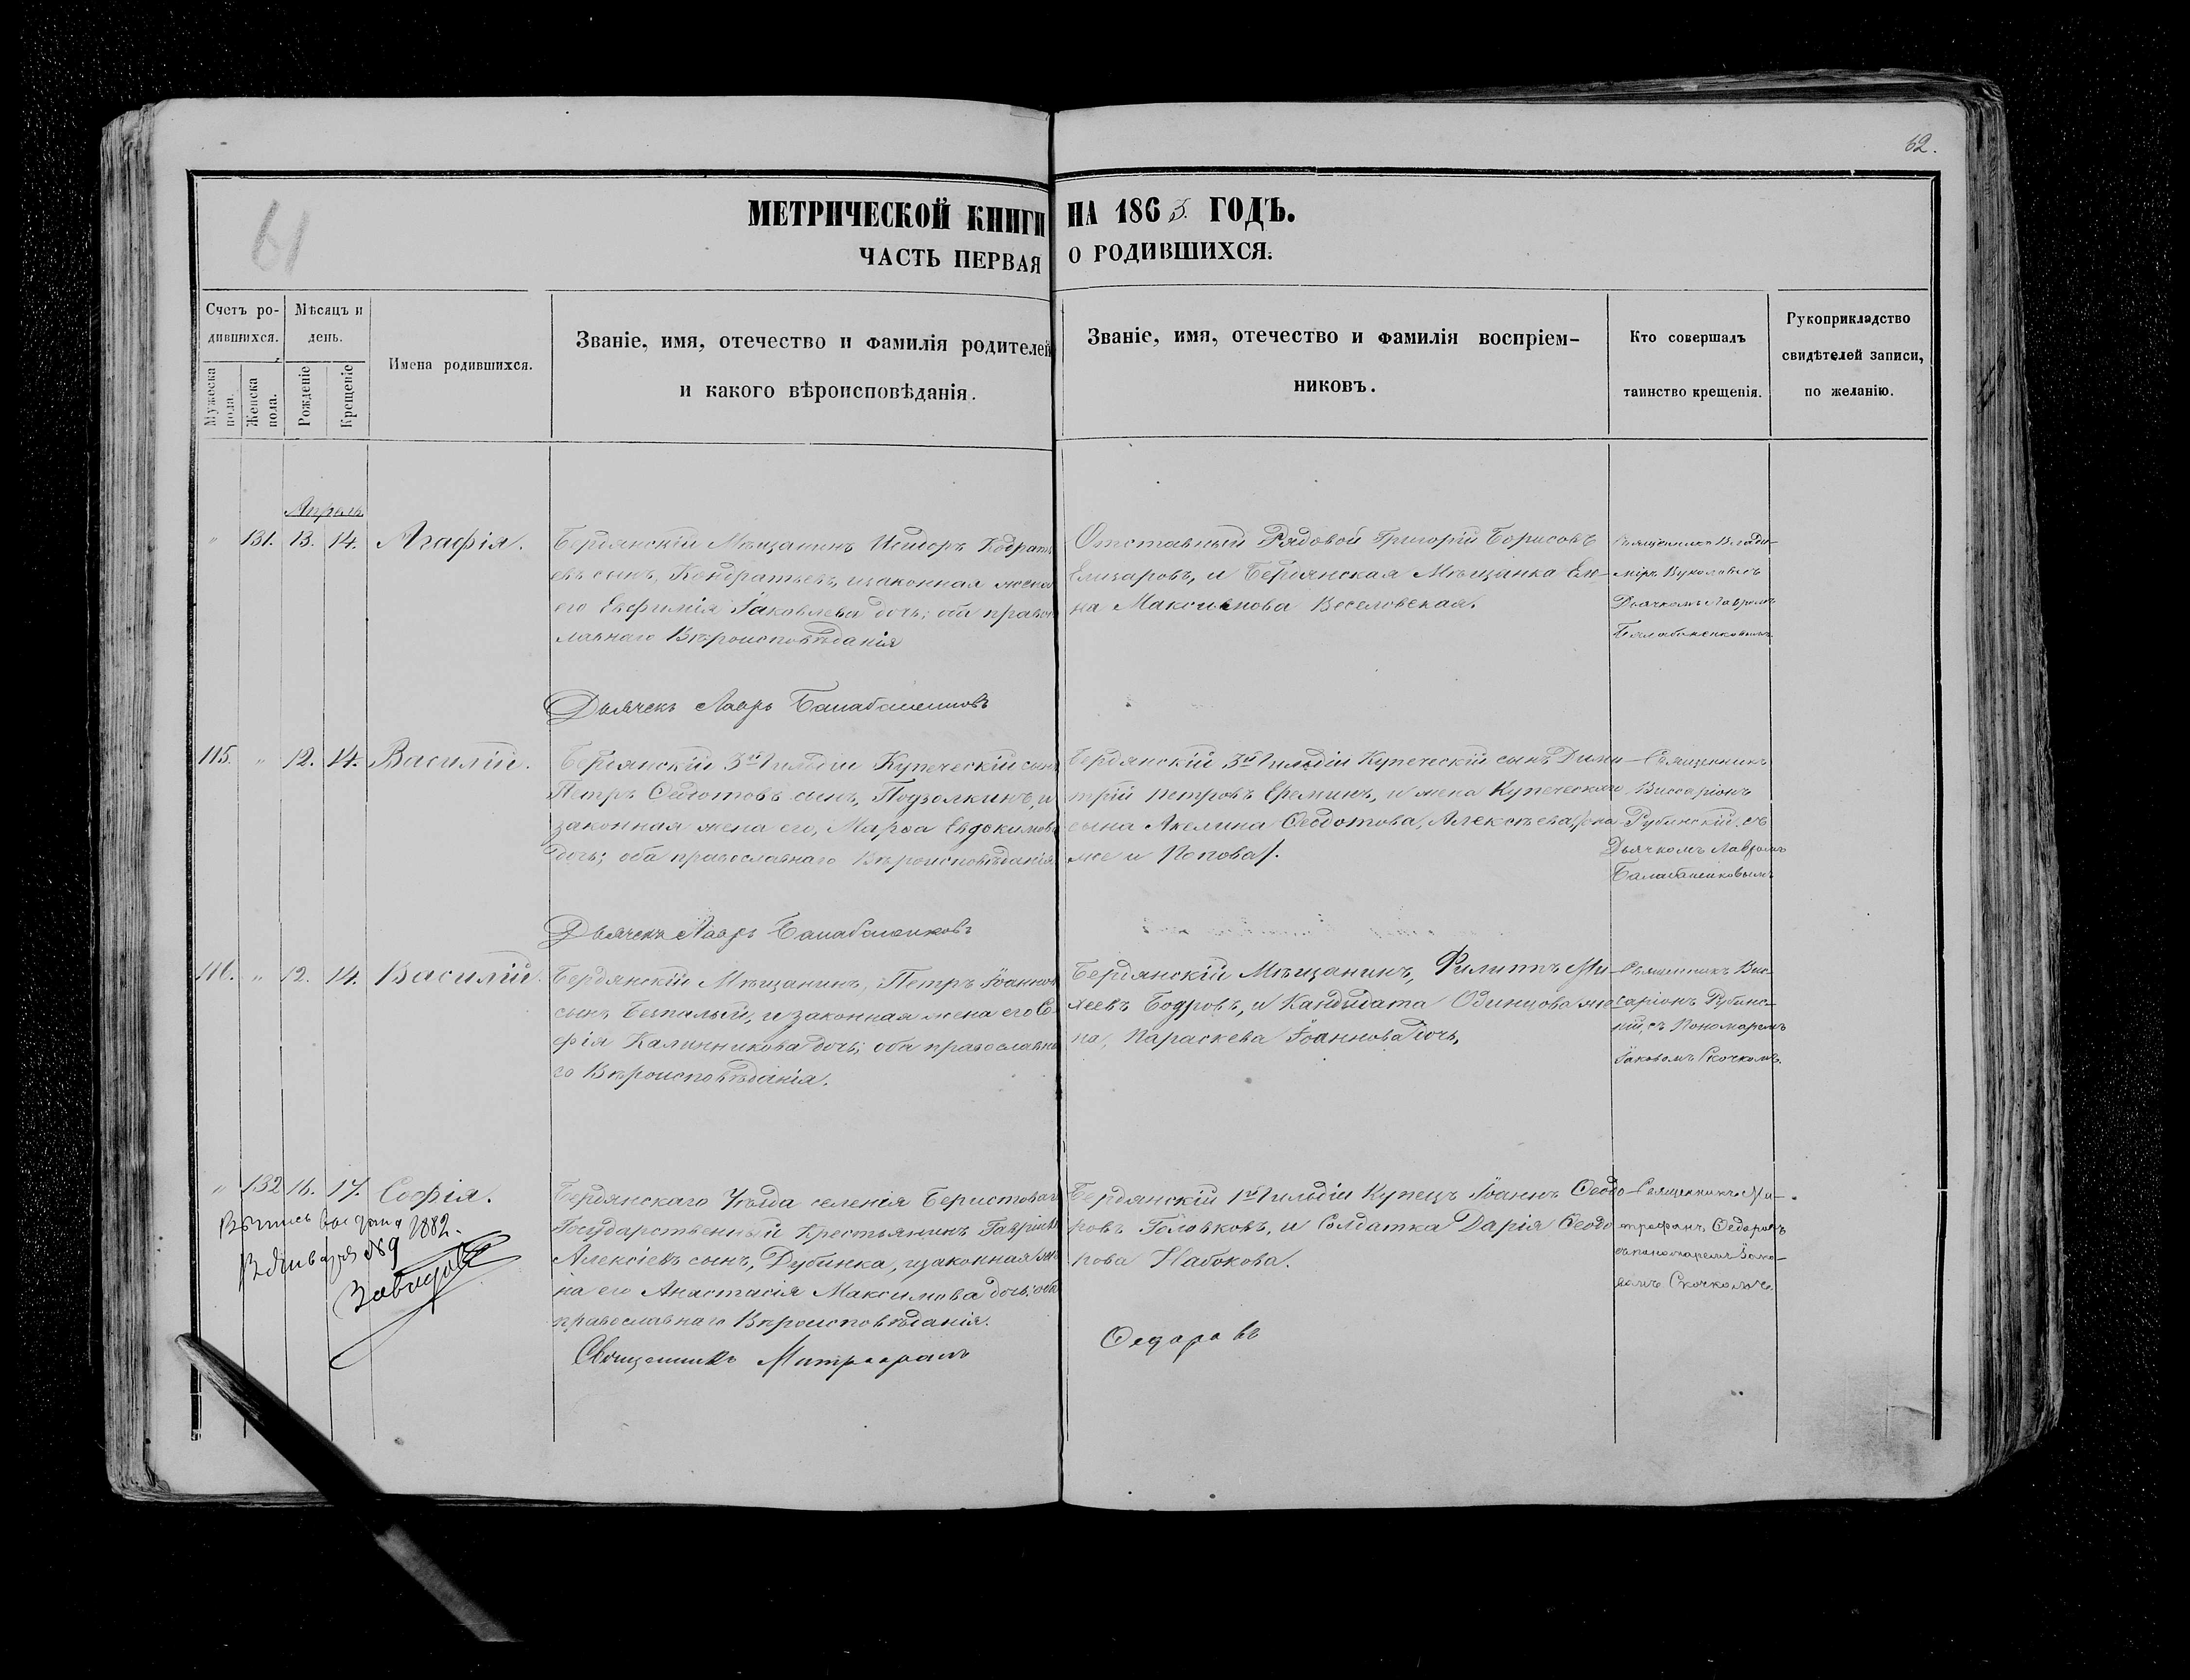 62.
61
МЕТРИЧЕСКОЙ КНИГИ НА 1865. ГОДЪ.
ЧАСТЬ ПЕРВАЯ О РОДИВШИХСЯ.
Счетъ ро-
дившихся.
Мужеска
пола.
Женска
пола.
Мѣсяцъ и
день.
Рожденіе
Крещеніе
Имена родившихся.
Званіе, имя, отечество и фамилія родителей
и какого вѣроисповѣданія.
Званіе, имя, отечество и фамилія воспріем-
никовъ.
Кто совершалъ
таинство крещенія.
Рукоприкладство
свидѣтелей записи,
по желанію.
Апрель
" 131. 13. 14. Агафія.
Бердянскій Мѣщанинъ Кодрать
евъ сынъ, Кондратьевъ, изаконная жена
его Евфимія Іаковлева дочь; оба правос
лавнаго Вѣроисповѣданія
Отставный Рядовой Григорій Борисовъ
Елизаровъ, и Бердянская Мѣщанка Еле
на Максимова Веселовская.
Священникъ Влади-
міръ Вуколовъ съ
Дьячкомъ Лавромъ
Дьячекъ Лавръ Балабаненковъ
115. " 12. 14. Василій.
Бердянскій 3й Гильдіи Купеческій сынъ
Петръ Ѳеодотовъ сынъ, Подзолкинъ, и
законная жена его, Марѳа Евдокимова
дочь; оба православнаго Вѣроисповѣданія
Бердянскій 3й Гильдіи Купеческій сынъ Дими
трій Петровъ Ереминъ, и жена Купеческаго
сына Акелина Ѳеодотова, Алексѣева /она
же и Попова/.
Священникъ
Виссаріонъ
Рубинскій съ
Дьячкомъ Лавромъ
Балабаненковымъ
Дьячекъ Лавръ Балабаненковъ
116. " 12. 14. Василій.
Бердянскій Мѣщанинъ, Петръ Іоаннов
сынъ Безпалый, и законная жена его Со
фія Калинникова дочь; оба православна
го Вѣроисповѣданія.
Бердянскій Мѣщанинъ, Филиппъ Ми
хеевъ Бодровъ, и Кандидата Одинцова же
на, Параскева Іоаннова дочь,
Священникъ Вис-
саріонъ Рубинс-
кій, съ Пономаремъ
Іаковомъ Скочкомъ.
" 132 16. 17. Софія.
Бердянскаго Уѣзда селенія Берестоваго
Государственный Крестьянинъ Гавріилъ
Алексіевъ сынъ, Дубинка, изаконная же
на его Анастасія Максимова дочь: оба
православнаго Вѣроисповѣданія.
Бердянскій 1й Гильдіи Купецъ Іоаннъ Ѳеодо
ровъ Головковъ, и Солдатка Дарія Ѳеодо
рова Набокова.
Священникъ Ми-
трофанъ Ѳедоровъ
съ пономаремъ Іако-
вомъ Скочкомъ.
Выпись выдана
Января №9 1882.
Священникъ Митрофанъ Ѳедоровъ